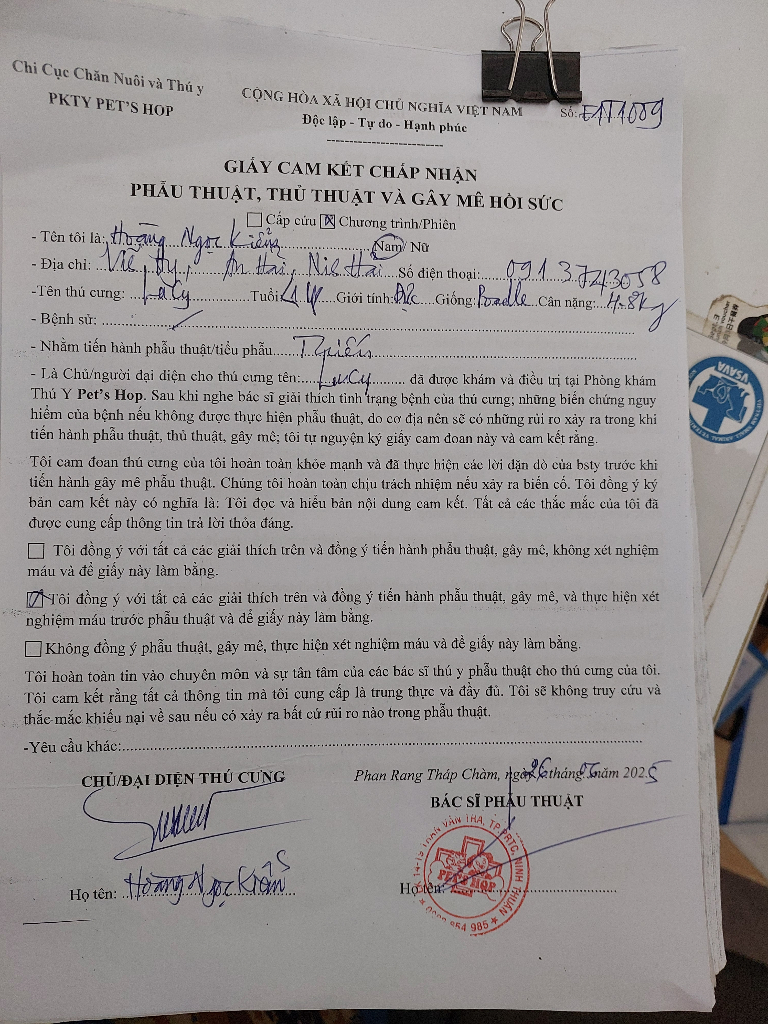 Chi Cục Chăn Nuôi và Thú y
PKTY PET'S HOP
CỘNG HÒA XÃ HỘI CHỦ NGHĨA VIỆT NAM
Độc lập - Tự do - Hạnh phúc
Số: E1T1009
GIẤY CAM KẾT CHẤP NHẬN
PHẪU THUẬT, THỦ THUẬT VÀ GÂY MÊ HỒI SỨC
Cấp cứu Chương trình/Phiên
- Tên tôi là: Hoàng Ngọc Nam/ Nữ
- Địa chỉ: Vĩnh Hy, Số điện thoại: 0913743058
-Tên thú cưng: LuCy Tuổi: Giới tính: Đực Giống: Poodle Cân nặng: 4.8kg
- Bệnh sử:
- Nhằm tiến hành phẫu thuật/tiểu phẫu Thiến
- Là Chủ/người đại diện cho thú cưng tên: LuCy đã được khám và điều trị tại Phòng khám
Thú Y Pet's Hop. Sau khi nghe bác sĩ giải thích tình trạng bệnh của thú cưng; những biến chứng nguy
hiểm của bệnh nếu không được thực hiện phẫu thuật, do cơ địa nên sẽ có những rủi ro xảy ra trong khi
tiến hành phẫu thuật, thủ thuật, gây mê; tôi tự nguyện ký giấy cam đoan này và cam kết rằng.
Tôi cam đoan thú cưng của tôi hoàn toàn khỏe mạnh và đã thực hiện các lời dặn dò của bsty trước khi
tiến hành gây mê phẫu thuật. Chúng tôi hoàn toàn chịu trách nhiệm nếu xảy ra biến cố. Tôi đồng ý ký
bản cam kết này có nghĩa là: Tôi đọc và hiểu bản nội dung cam kết. Tất cả các thắc mắc của tôi đã
được cung cấp thông tin trả lời thỏa đáng.
Tôi đồng ý với tất cả các giải thích trên và đồng ý tiến hành phẫu thuật, gây mê, không xét nghiệm
máu và để giấy này làm bằng.
Tôi đồng ý với tất cả các giải thích trên và đồng ý tiến hành phẫu thuật, gây mê, và thực hiện xét
nghiệm máu trước phẫu thuật và để giấy này làm bằng.
Không đồng ý phẫu thuật, gây mê, thực hiện xét nghiệm máu và để giấy này làm bằng.
Tôi hoàn toàn tin vào chuyên môn và sự tân tâm của các bác sĩ thú y phẫu thuật cho thú cưng của tôi.
Tôi cam kết rằng tất cả thông tin mà tôi cung cấp là trung thực và đầy đủ. Tôi sẽ không truy cứu và
thắc mắc khiếu nại về sau nếu có xảy ra bất cứ rủi ro nào trong phẫu thuật.
-Yêu cầu khác:
CHỦ/ĐẠI DIỆN THÚ CƯNG
Phan Rang Tháp Chàm, ngày 26 tháng 06 năm 2025
BÁC SĨ PHẪU THUẬT
Họ tên: Hoàng Ngọc
Họ tên:
TRẦN VĂN TRÀ, TP.PRTC, NINH THUẬN
PET'S HOP
VSAVA